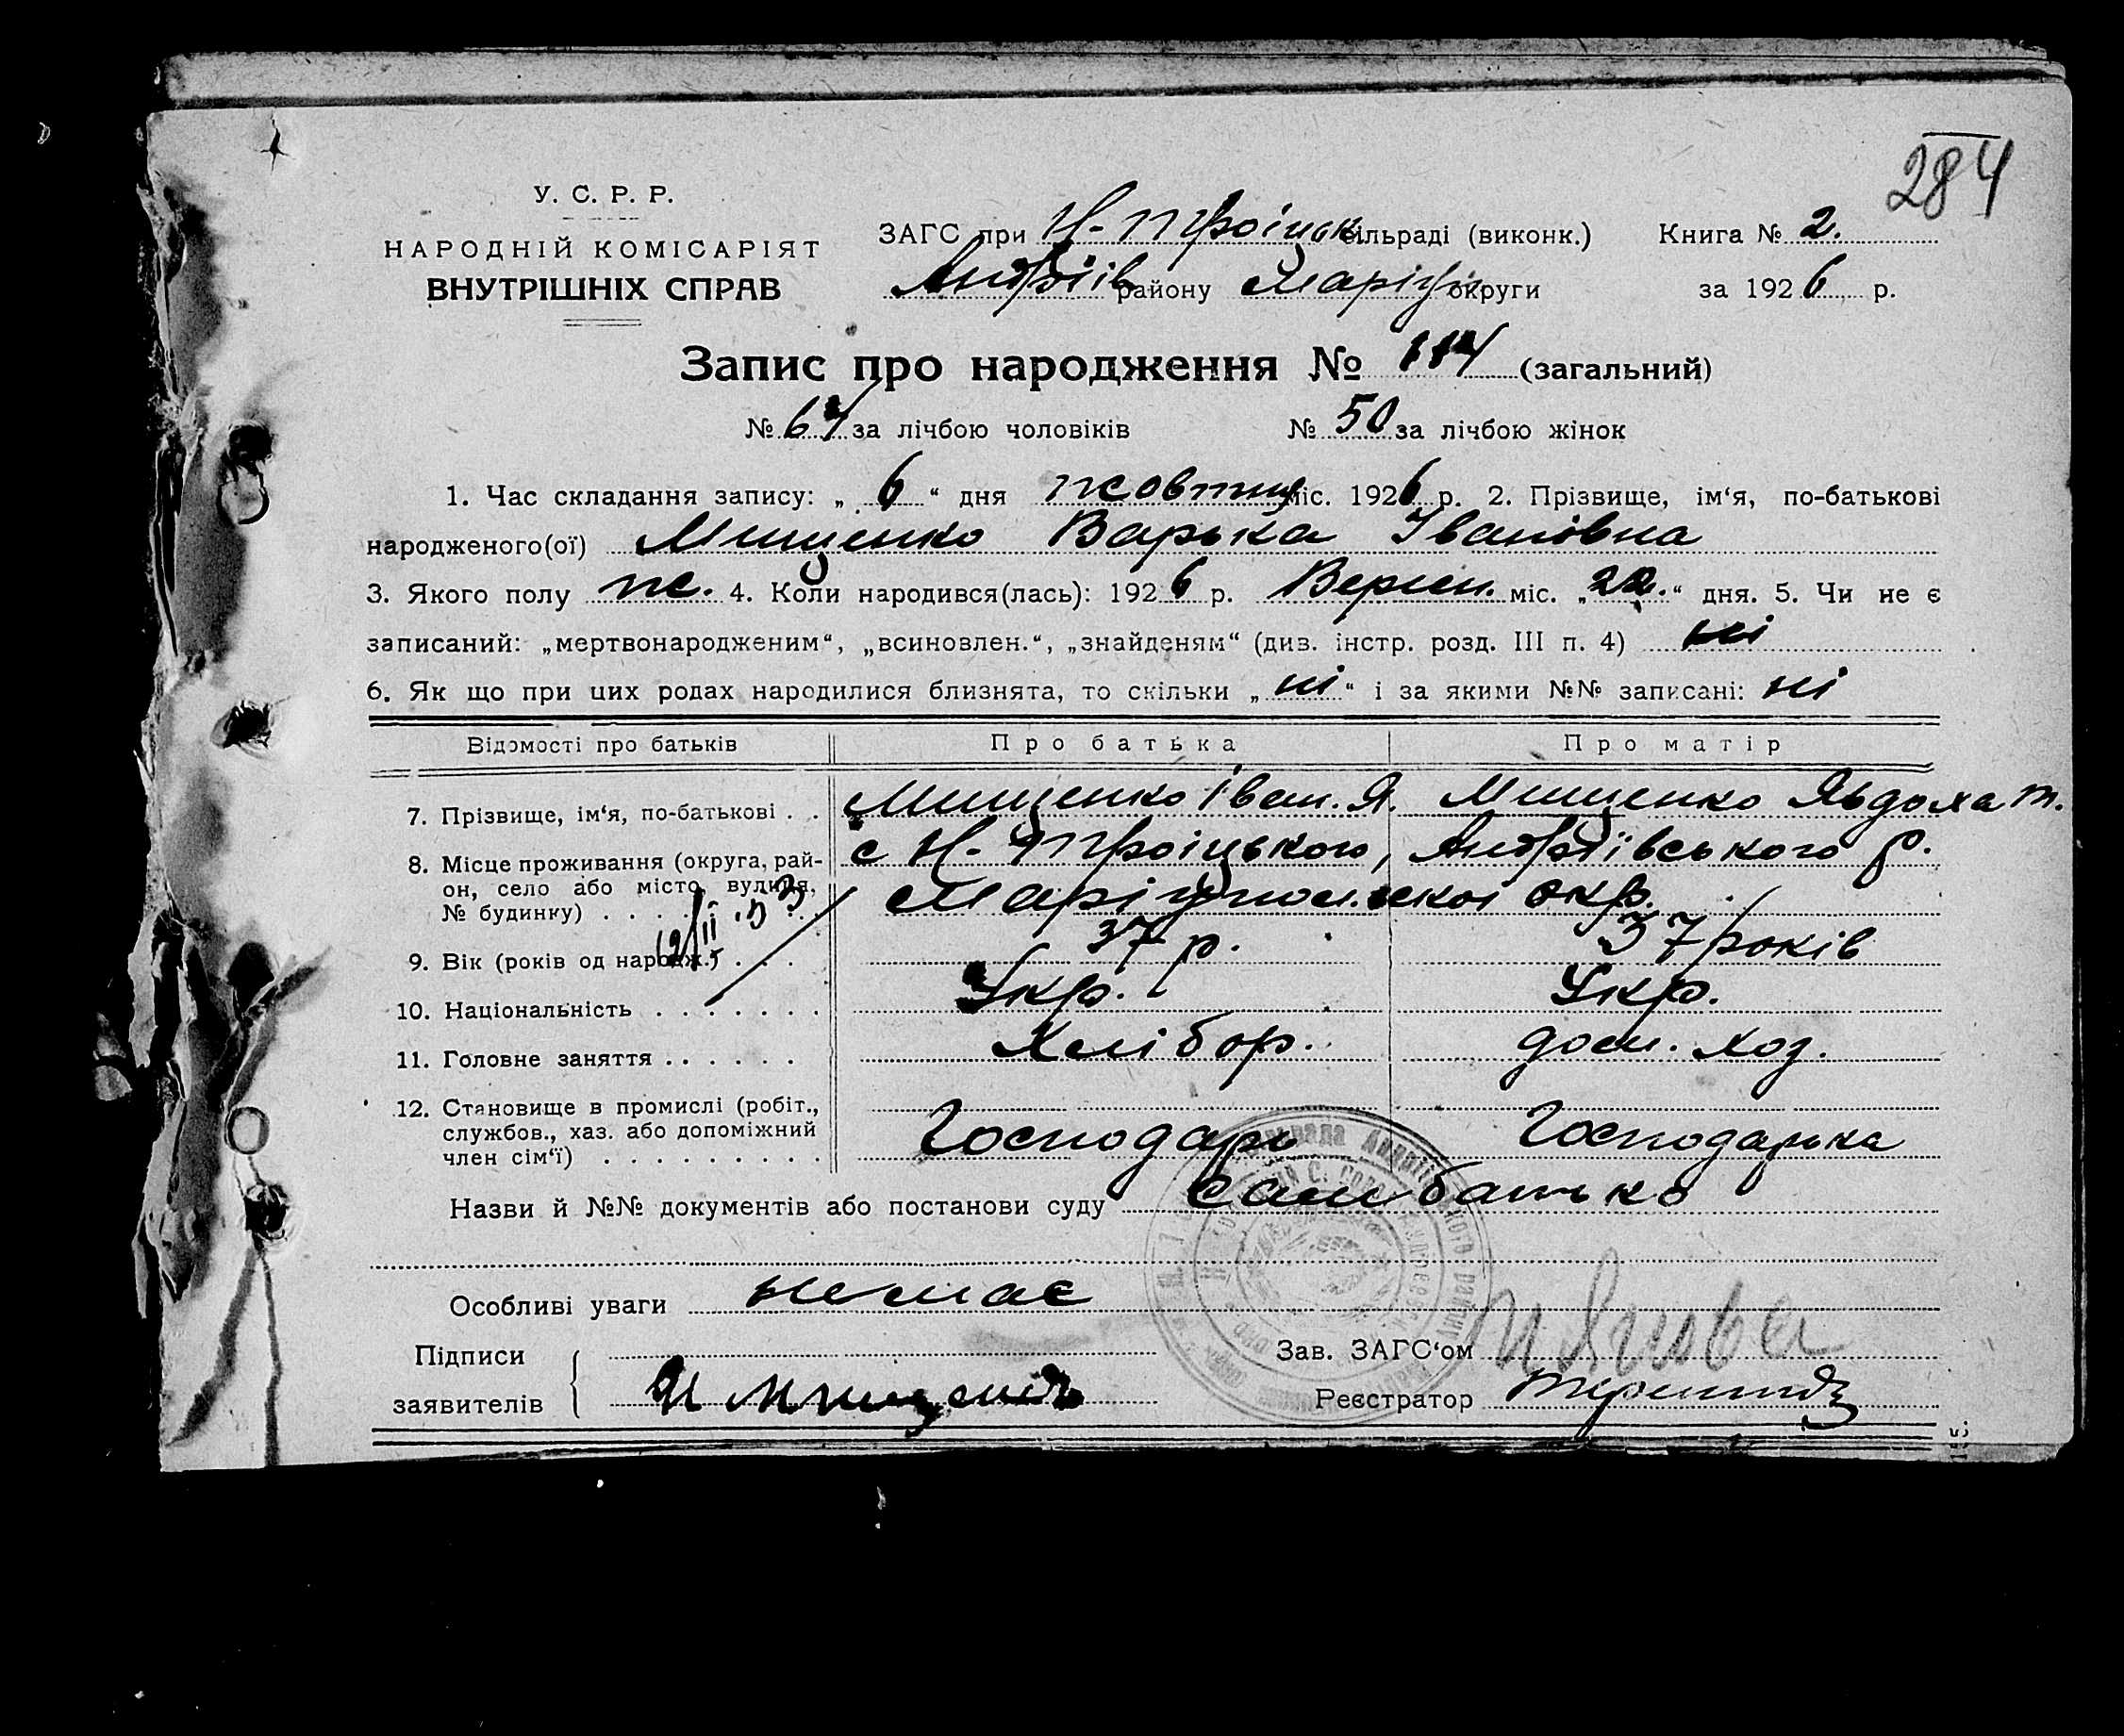 284
У. С. Р. Р.
НАРОДНІЙ КОМІСАРІЯТ
ВНУТРІШНІХ СПРАВ
ЗАГС при Н-Троіцьк. сільраді (виконк.) Книга № 2.
Андріів району Маріуп. округи за 1926 р.
Запис про народження № 114 (загальний)
№ 64 за лічбою чоловіків № 50 за лічбою жінок
1. Час складання запису: „ 6 “ дня жовтня міс. 1926 р. 2. Прізвище, ім‘я, по-батькові
народженого(ої) Мищенко Варька Івановна
3. Якого полу ж. 4. Коли народився(лась): 1926 р. Версн. міс. „22.“ дня. 5. Чи не є
записаний: „мертвонародженим“, „всиновлен.“, „знайденям“ (див. інстр. розд. III п. 4) ні
6. Як що при цих родах народилися близнята, то скільки „ ні “ і за якими №№ записані: ні
Відомості про батьків Про батька Про матір
7. Прізвище, ім‘я, по-батькові . . Мищенко Іван. Я. Мищенко Явдоха Т.
8. Місце проживання (округа, рай-
он, село або місто, вулиця,
№ будинку) . . . .
с Н-Троіцького, Андріівського р.
Маріупол.ської окр.
9. Вік (років од народж.) . . . 37 р. 37 років
10. Національність . . . . . . . Укр. Укр.
11. Головне заняття . . . . . . Хлібор. дом. хоз.
12. Становище в промислі (робіт.,
службов., хаз. або допоміжний
член сім‘ї) . . . . . . . . . Господарь Господарька
Назви й №№ документів або постанови суду сам батько
Особливі уваги немає
Підписи
заявителів И Мищенко
Зав. ЗАГС‘ом
Реєстратор